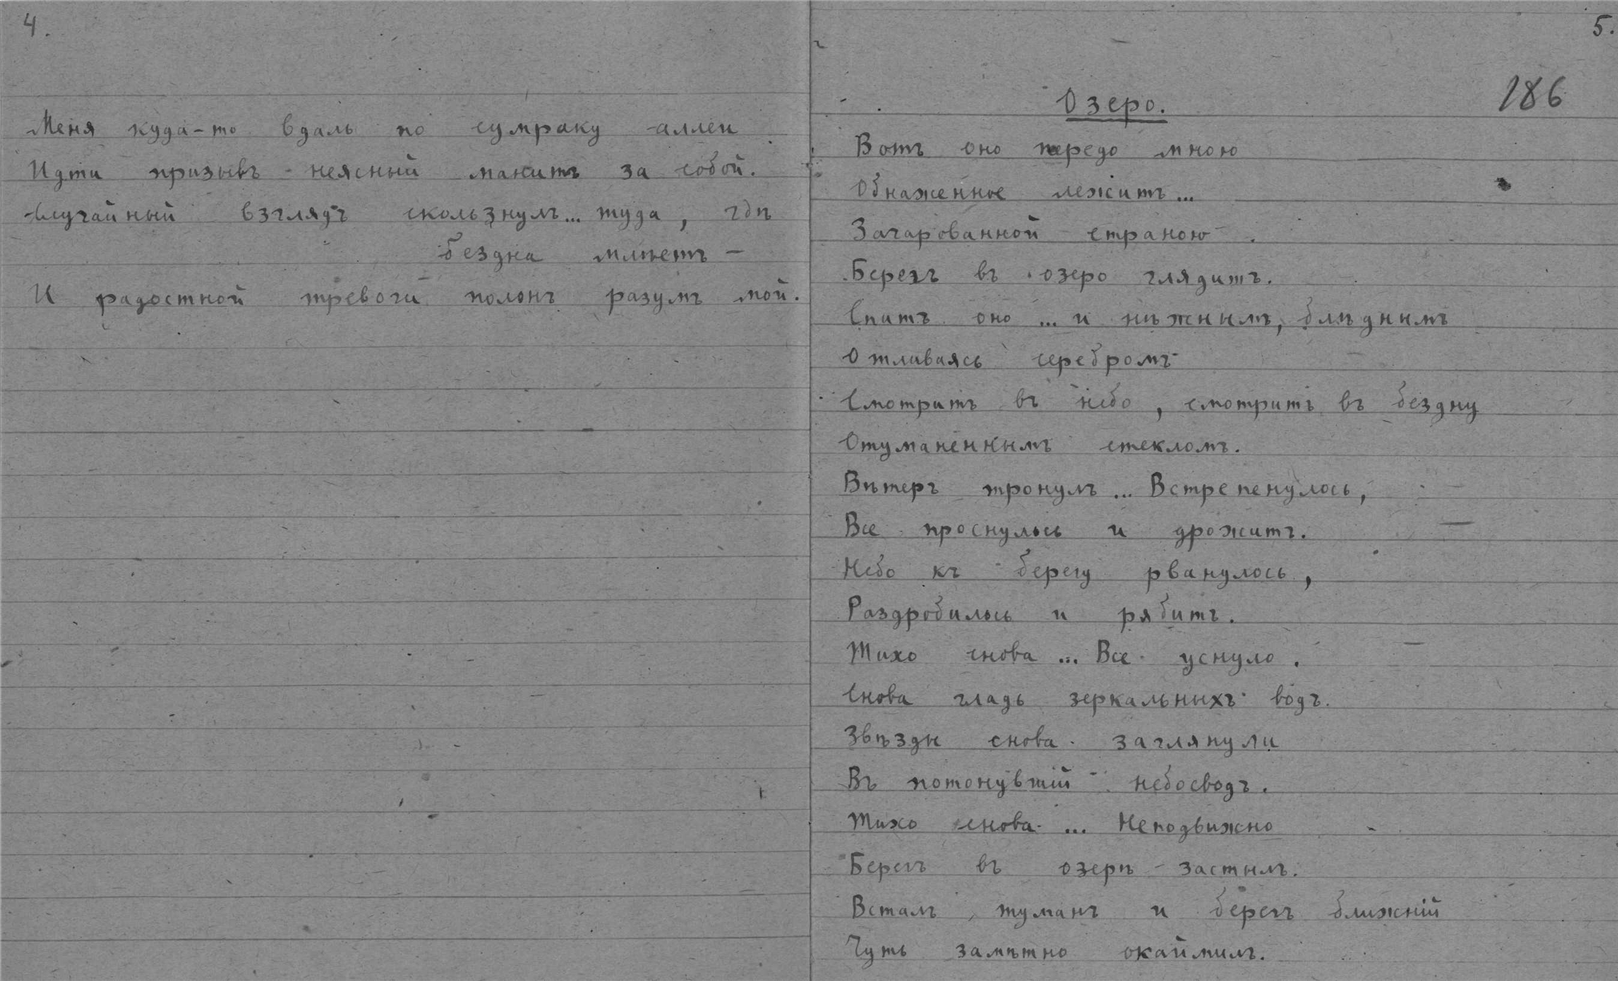 4.
Меня куда-то вдаль по сумраку аллеи
Идти призывъ неясный манитъ за собой.
Случайный взглядъ скользнулъ... туда, гдѣ
бездна млѣетъ –
И радостной тревоги полонъ разумъ мой.
5.
186
Озеро.
Вотъ оно передо мною
Обнаженное лежитъ...
Зачарованной страною
Берегъ въ озеро глядитъ.
Спитъ оно ... и нѣжнымъ, блѣднымъ
Отливаясь серебромъ
Смотритъ въ небо, смотритъ въ бездну
Отуманеннымъ стекломъ.
Вѣтеръ тронулъ ... Встрепенулось,
Все проснулось и дрожитъ.
Небо къ берегу рванулось,
Раздробилось и рябитъ.
Тихо снова ... Все уснуло.
Снова гладь зеркальныхъ водъ.
Звѣзды снова заглянули
Въ потонувшій небосводъ.
Тихо снова ... Неподвижно
Берегъ въ озерѣ застылъ.
Всталъ туманъ и берегъ ближній
Чуть замѣтно окаймилъ.